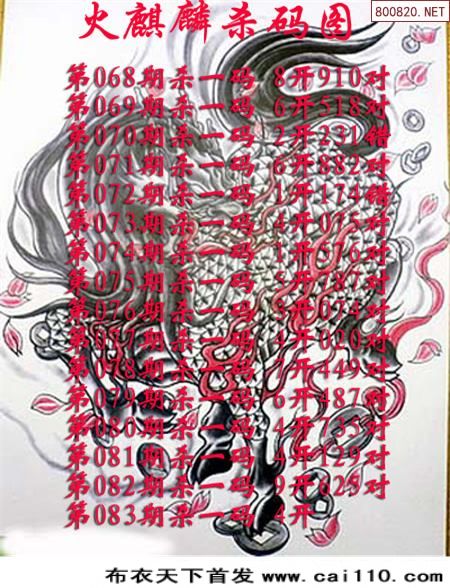 800820.NET
火麒麟杀码图
第068期杀一码 8开910对
第069期杀一码 6开518对
第070期杀一码 2开231错
第071期杀一码 6开882对
第072期杀一码 1开174错
第073期杀一码 4开075对
第074期杀一码 1开576对
第075期杀一码 开787对
第076期杀一码 开074对
第077期杀一码 4开020对
第078期杀一码 开449对
第079期杀一码 6开487对
第080期杀一码 4开735对
第081期杀一码 4开129对
第082期杀一码 9开625对
第083期杀一码 4开
布衣天下首发 www.cai110.com